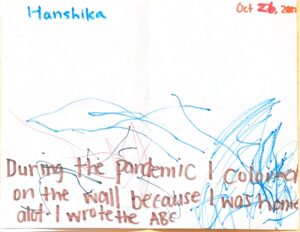 Hanshika
Oct 26, 20
During the pandemic I colored
on the wall because I was home
alot I wrote the ABC